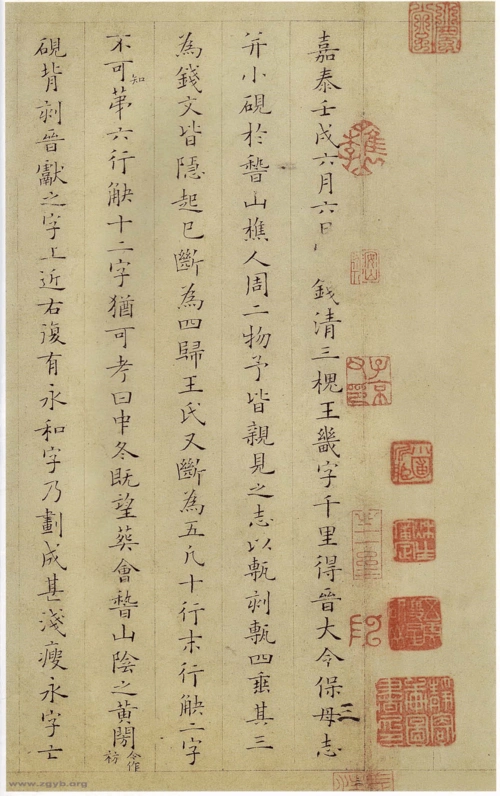 嘉泰壬戌六月六日 錢清三槐王畿字千里得晉大令保母志
三
并小硯於稽山樵人周二物予皆親見之志以甎刻甎四垂其三
為錢文皆隱起已斷為四歸王氏又斷為五凡十行末行缺二字
不可知第六行缺十二字猶可考曰中冬既望葬會稽山陰之黃閍今作祊
硯背刻晉獻之字上近右復有永和字乃劃成甚淺瘦永字亡
www.zgyb.org